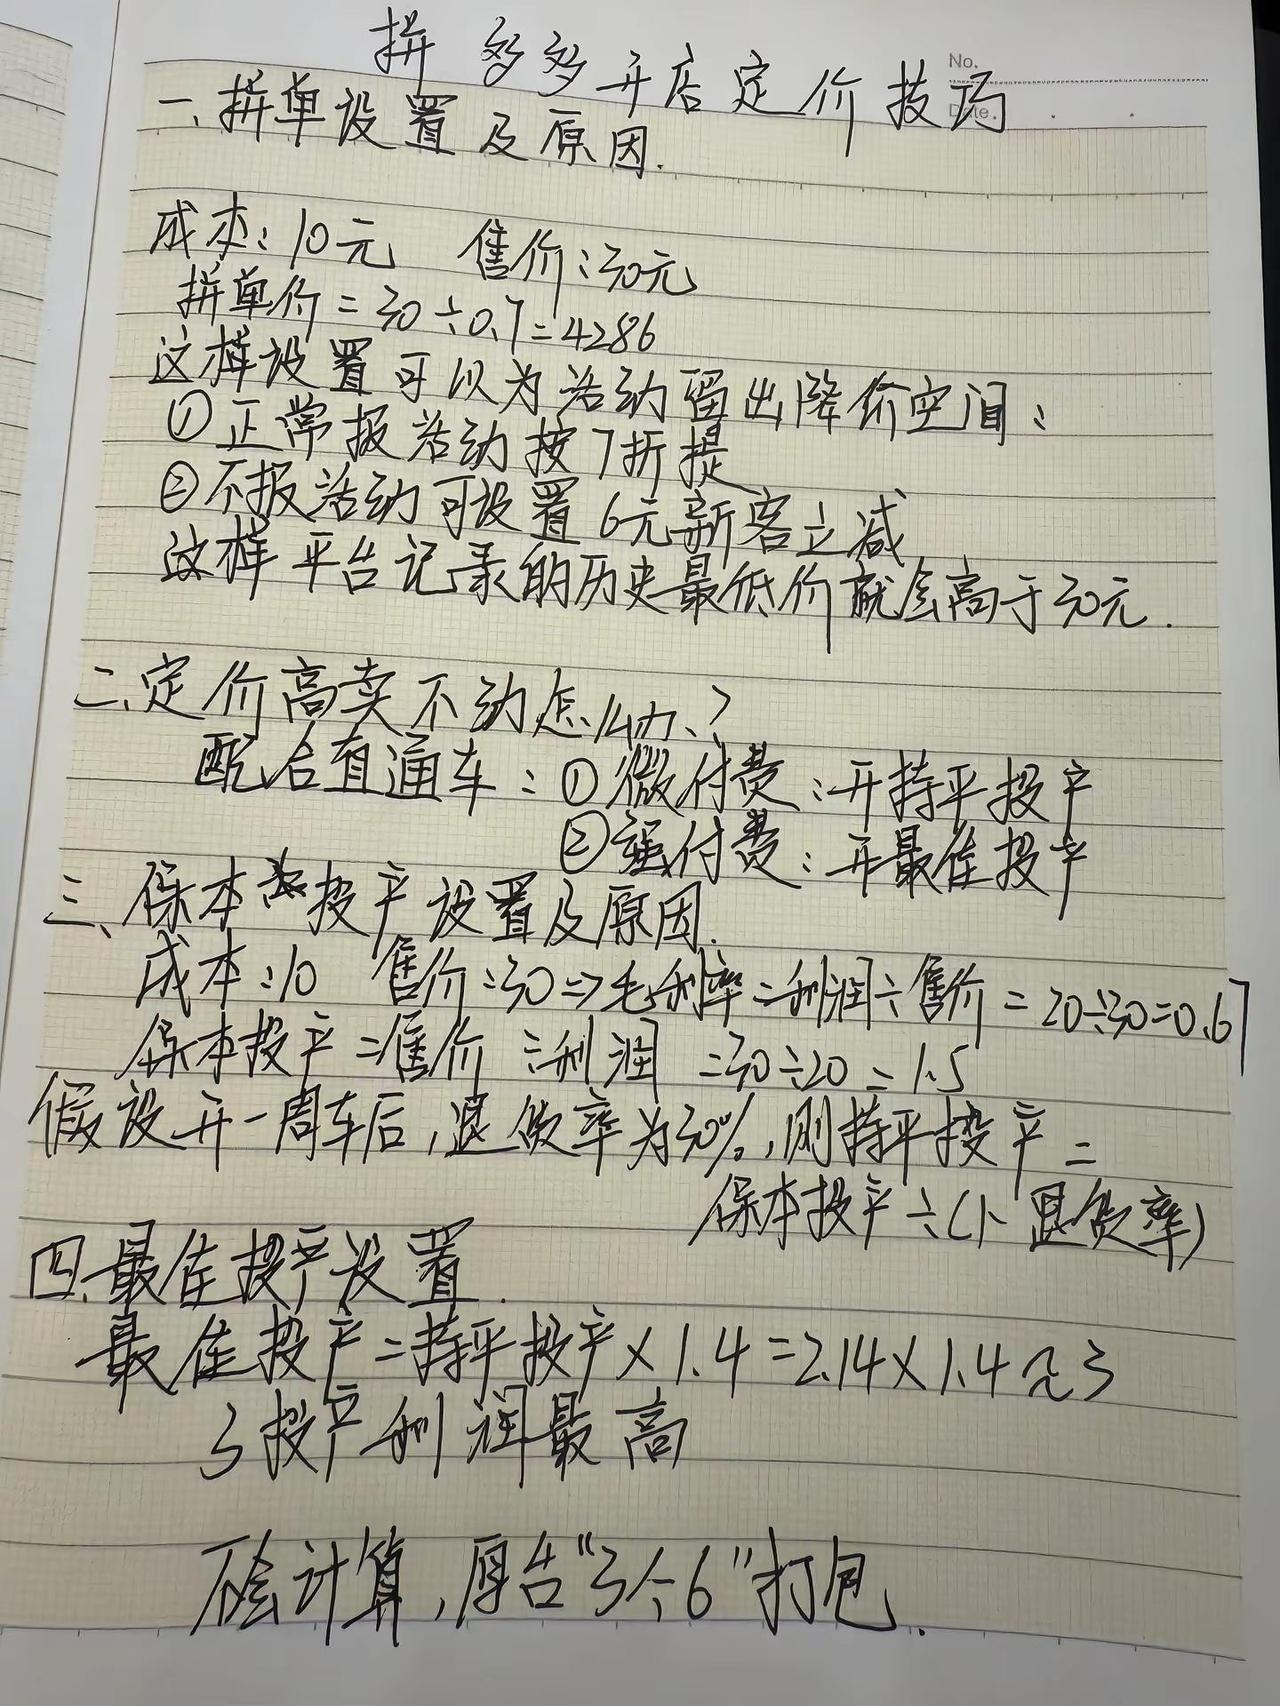 No.
Date.
拼多多开店定价技巧
一、拼单设置及原因.
成本:10元 售价:30元
拼单价=30÷0.7=4286
这样设置可以为活动留出降价空间:
①正常报活动按7折提
②不报活动可设置6元新客立减
这样平台记录的历史最低价就会高于30元.
二、定价高卖不动怎么办?
配合直通车:①微付费:开持平投产
②强付费:开最佳投产
三、保本投产设置及原因.
成本:10 售价:30=>毛利率=利润÷售价=20÷30=0.67
保本投产=售价÷利润=30÷20=1.5
假设开一周车后,退货率为30%,则持平投产=
保本投产÷(1-退货率)
四、最佳投产设置.
最佳投产=持平投产×1.4=2.14×1.4≈3
3投产利润最高
不会计算,后台“3个6”打包.